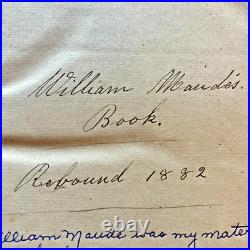 William Maude's.
Book.
Rebound 1882
William Maude was my mater